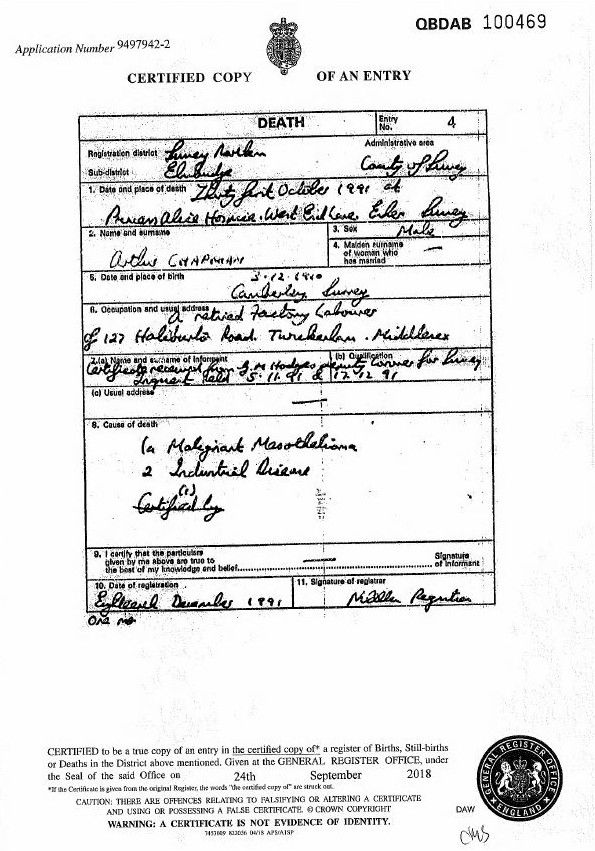 QBDAB 100469
Application Number 9497942-2
CERTIFIED COPY OF AN ENTRY
DEATH Entry No. 4
Registration district Surrey Northern Administrative area
Sub-district Elmbridge County of Surrey
1. Date and place of death Thirty first October 1991 at
Princess Alice Hospice. West End Lane, Esher Surrey
2. Name and surname 3. Sex Male
Arthur CHAPMAN 4. Maiden surname of woman who has married —
5. Date and place of birth 3.12.1910
Camberley Surrey
6. Occupation and usual address A retired Factory Labourer
of 127 Haliburton Road. Twickenham. Middlesex
7.(a) Name and surname of informant (b) Qualification
Certificate received from G M Hodges Deputy Coroner for Surrey
Inquest held 5.11.91 & 17.12.91
(c) Usual address —
8. Cause of death
1a Malignant Mesothelioma
2 Industrial Disease
(1)
Certified by
9. I certify that the particulars given by me above are true to the best of my knowledge and belief — Signature of informant
10. Date of registration 11. Signature of registrar
Eighteenth December 1991
One
CERTIFIED to be a true copy of an entry in the certified copy of* a register of Births, Still-births
or Deaths in the District above mentioned. Given at the GENERAL REGISTER OFFICE, under
the Seal of the said Office on 24th September 2018
*If the Certificate is given from the original Register, the words "the certified copy of" are struck out.
CAUTION: THERE ARE OFFENCES RELATING TO FALSIFYING OR ALTERING A CERTIFICATE
AND USING OR POSSESSING A FALSE CERTIFICATE. © CROWN COPYRIGHT
WARNING: A CERTIFICATE IS NOT EVIDENCE OF IDENTITY.
04/18 APS/AISP
DAW
GENERAL REGISTER OFFICE
ENGLAND